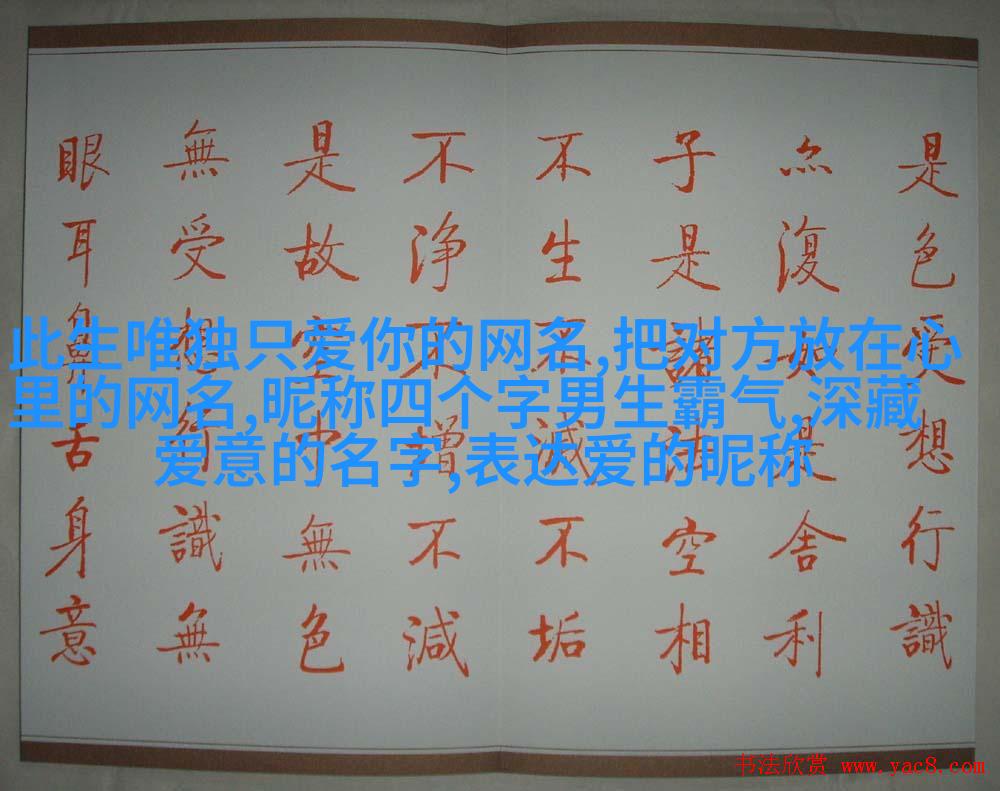 是色受想行識
亦復如是舍利
子是諸法空相
不生不滅不垢
不淨不增不減
是故空中無色
無受想行識無
眼耳鼻舌身意
此生唯独只爱你的网名,把对方放在心
里的网名,昵称四个字男生霸气,深藏
爱意的名字,表达爱的昵称
书法欣赏 www.yac8.com